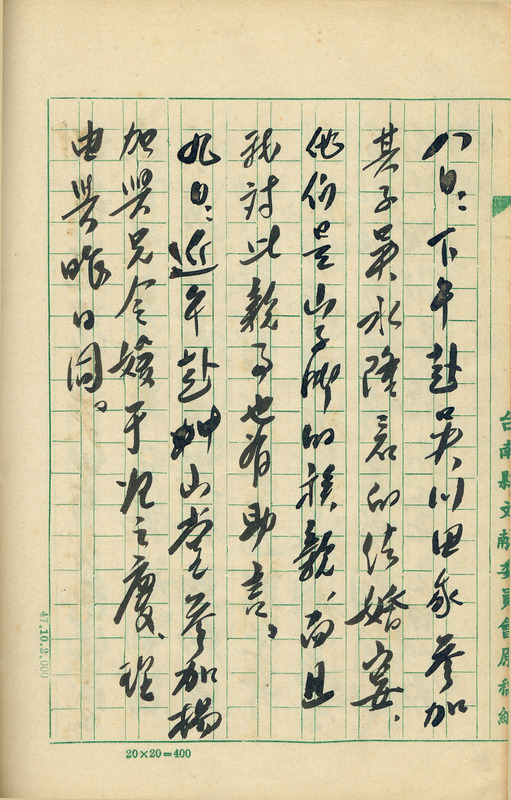 八日：下午赴吳川田家參加
其子吳永隆君的結婚宴，
他們是山子脚的族親，而且
我對此親事也有助言。
九日：近午赴山堂參加楊
加興兄令嬡于归之慶，理
由與昨日同。
台南縣文獻委員會原稿紙
47.10.2,000
20×20=400